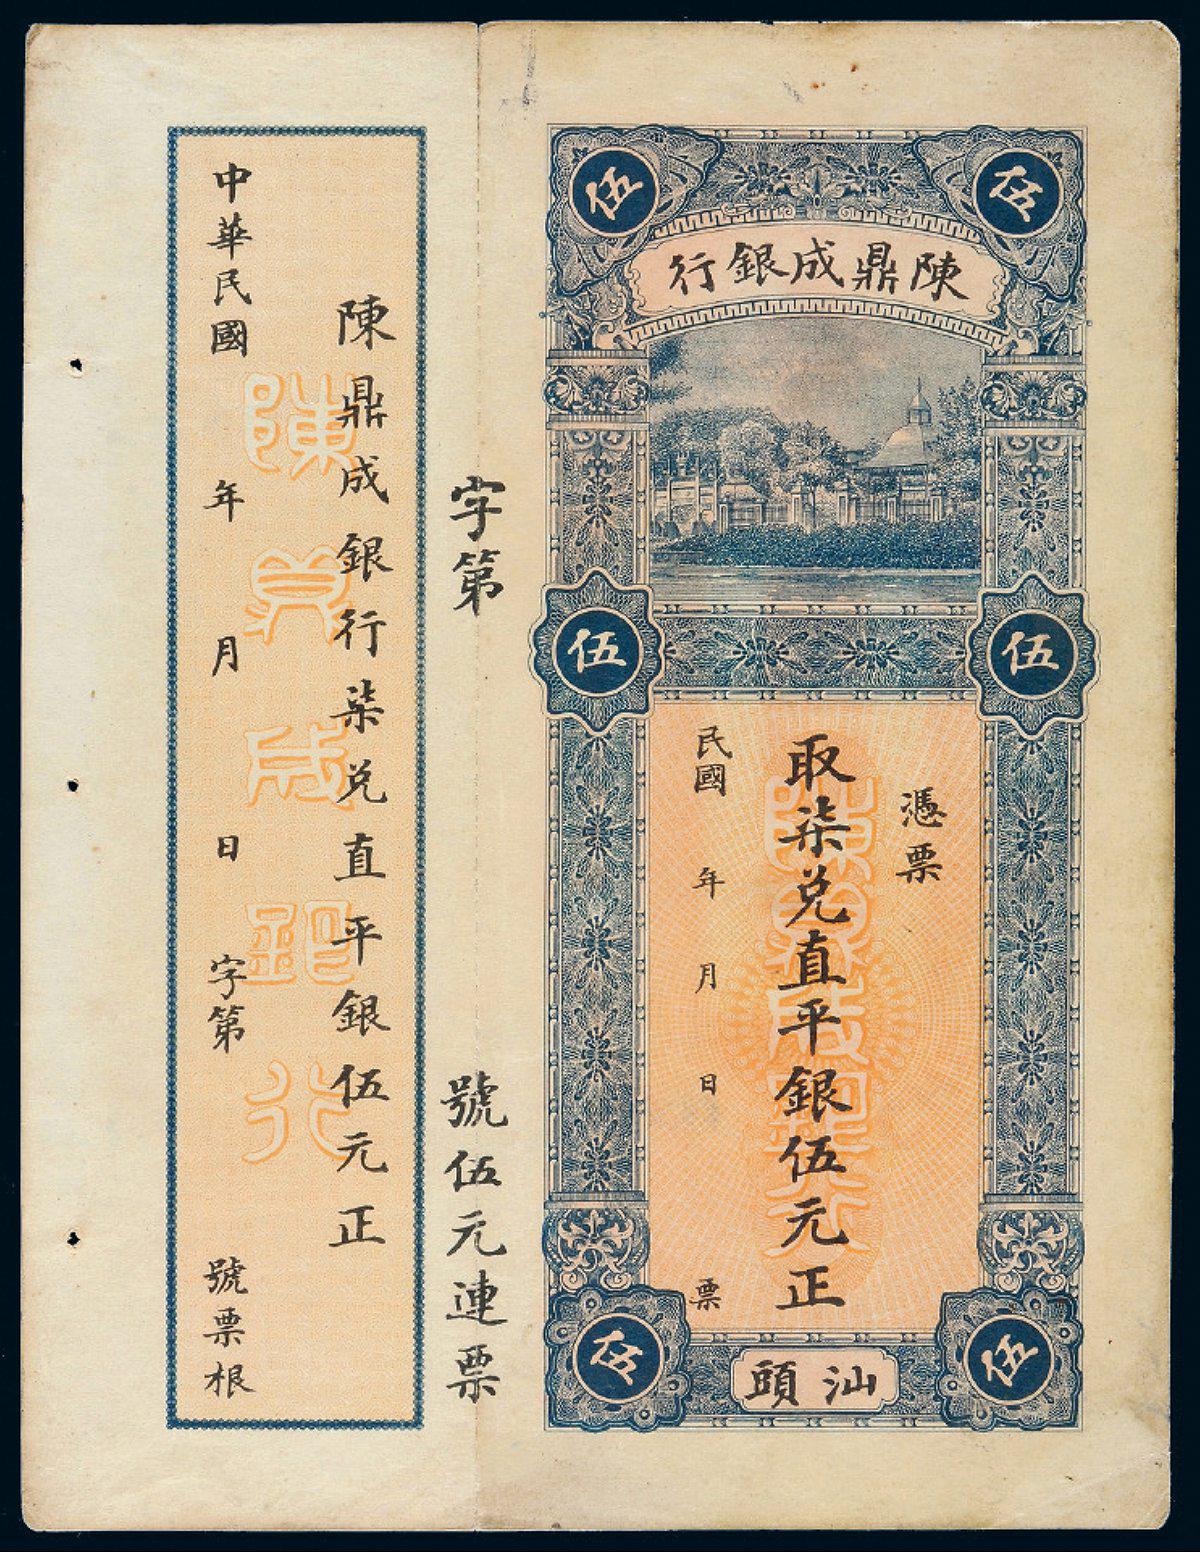 伍
伍
陳鼎成銀行
伍
伍
憑票
取柒兌直平銀伍元正
民國 年 月 日 票
陳鼎成銀行
伍
伍
汕頭
字第 號伍元連票
陳鼎成銀行柒兌直平銀伍元正
中華民國 年 月 日 字第 號票根
陳鼎成銀行